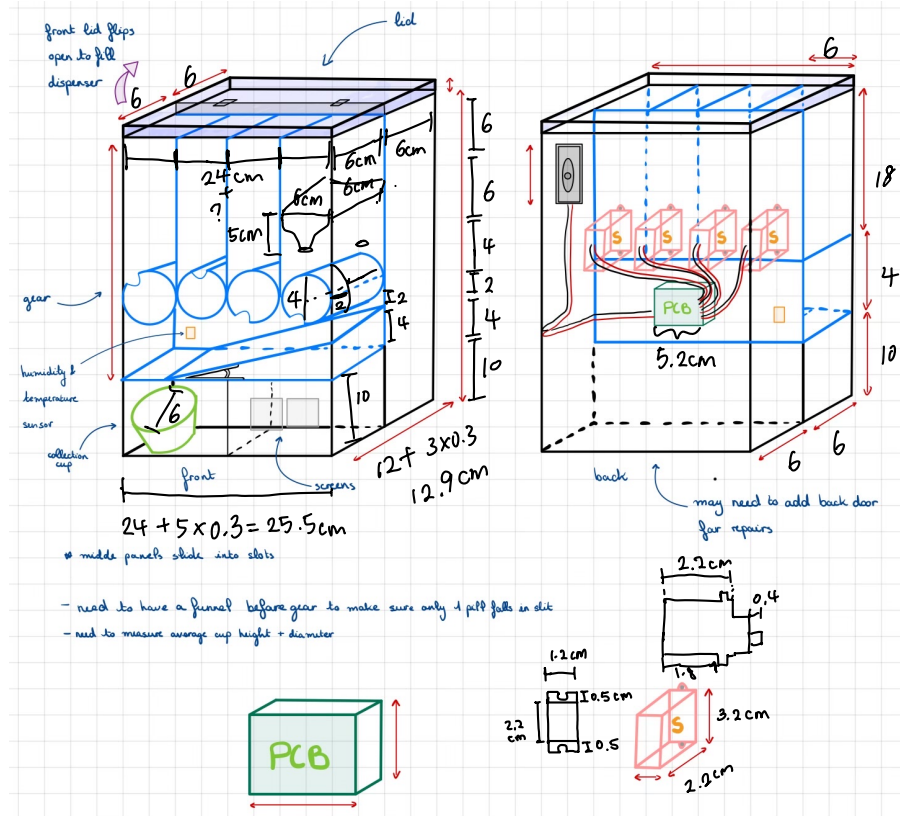 front lid flips
open to fill
dispenser
lid
6
6
6
6
6cm
6cm
24cm
+
?
6cm
6cm
5cm
6
4
2
4
10
gear
4
2
2
4
humidity &
temperature
sensor
collection
cup
6
10
front
screens
12+ 3x0.3
12.9cm
24 + 5 x 0.3 = 25.5cm
* middle panels slide into slots
- need to have a funnel before gear to make sure only 1 pill falls in slit
- need to measure average cup height + diameter
6
18
S
S
S
S
PCB
5.2cm
4
10
6
6
back
may need to add back door
for repairs
2.2cm
0.4
1.8
1.2cm
0.5cm
2.2
cm
0.5
S
3.2cm
2.2cm
PCB